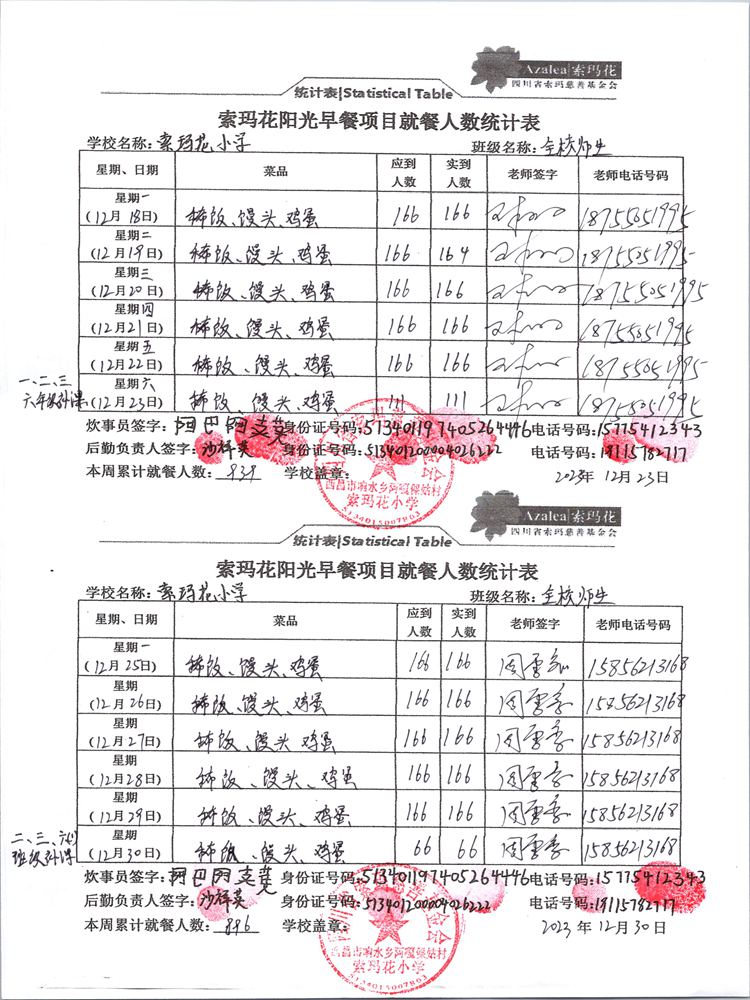 Azalea|索玛花
四川省索玛慈善基金会
统计表|Statistical Table
索玛花阳光早餐项目就餐人数统计表
学校名称：索玛花小学 班级名称：全校师生
星期、日期 菜品 应到人数 实到人数 老师签字 老师电话号码
星期一
(12月18日) 稀饭、馒头、鸡蛋 166 166 18755051995
星期二
(12月19日) 稀饭、馒头、鸡蛋 166 164 18755051995
星期三
(12月20日) 稀饭、馒头、鸡蛋 166 166 18755051995
星期四
(12月21日) 稀饭、馒头、鸡蛋 166 166 18755051995
星期五
(12月22日) 稀饭、馒头、鸡蛋 166 166 18755051995
一、二、三
六年级补课
星期六
(12月23日) 稀饭、馒头、鸡蛋 111 111 18755051995
炊事员签字：阿巴阿支莫 身份证号码：513401197405264446 电话号码：15775412343
后勤负责人签字：沙祥英 身份证号码：513401200004026222 电话号码：18115782717
本周累计就餐人数：939 学校盖章： 2023年12月23日
西昌市响水乡阿嘎保姑村
索玛花小学
5134015007803
Azalea|索玛花
四川省索玛慈善基金会
统计表|Statistical Table
索玛花阳光早餐项目就餐人数统计表
学校名称：索玛花小学 班级名称：全校师生
星期、日期 菜品 应到人数 实到人数 老师签字 老师电话号码
星期一
(12月25日) 稀饭、馒头、鸡蛋 166 166 15856213168
星期
(12月26日) 稀饭、馒头、鸡蛋 166 166 15856213168
星期
(12月27日) 稀饭、馒头、鸡蛋 166 166 15856213168
星期
(12月28日) 稀饭、馒头、鸡蛋 166 166 15856213168
星期
(12月29日) 稀饭、馒头、鸡蛋 166 166 15856213168
二、三、六(1)
班级补课
星期
(12月30日) 稀饭、馒头、鸡蛋 66 66 15856213168
炊事员签字：阿巴阿支莫 身份证号码：513401197405264446 电话号码：15775412343
后勤负责人签字：沙祥英 身份证号码：513401200004026222 电话号码：18115782717
本周累计就餐人数：896 学校盖章： 2023年12月30日
西昌市响水乡阿嘎保姑村
索玛花小学
5134015007803